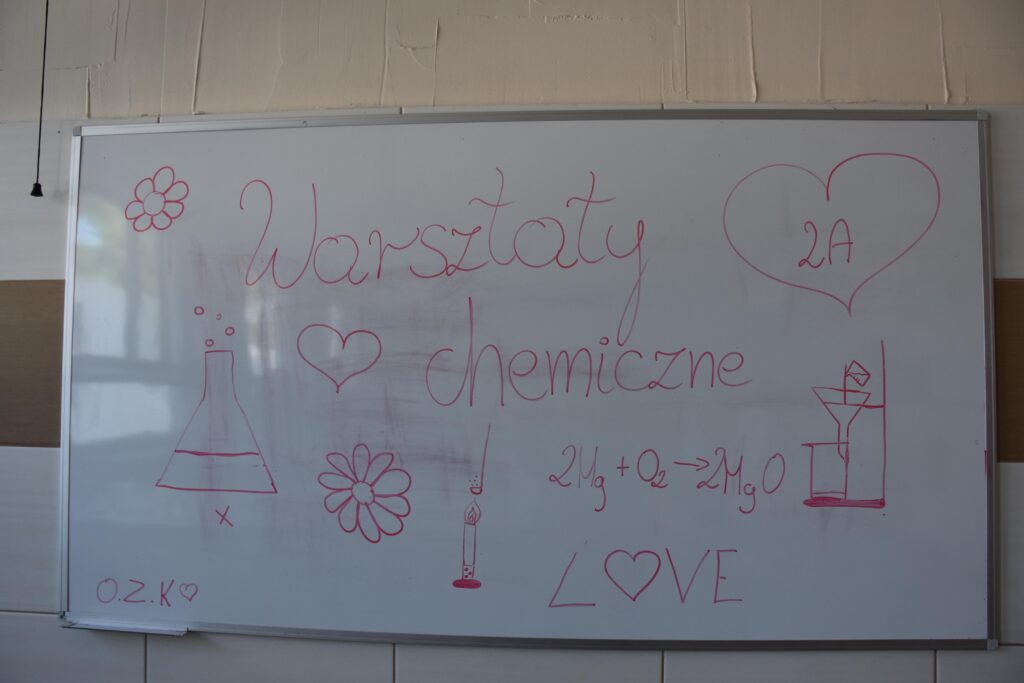 Warsztaty
2A
chemiczne
2Mg + O2 → 2MgO
x
LOVE
O.Z.K